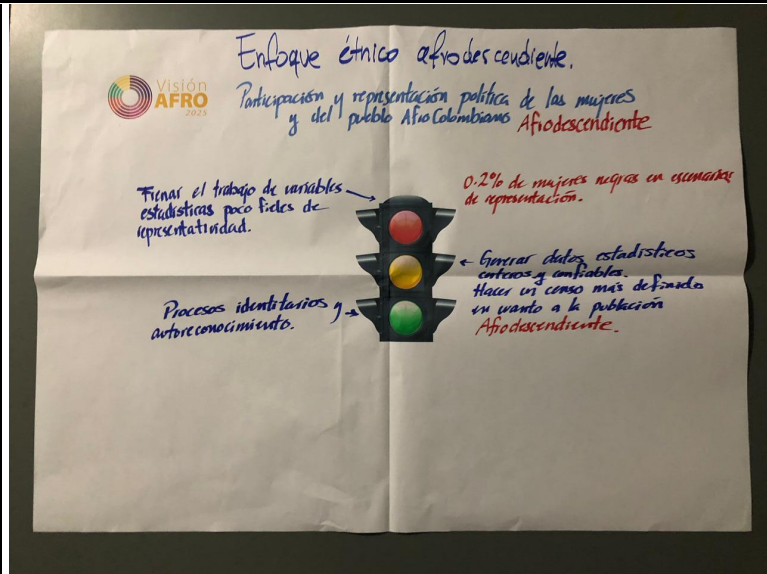 Enfoque étnico afrodescendiente.
Visión
AFRO
2025
Participación y representación política de las mujeres
y del pueblo AfroColombiano Afrodescendiente
Frenar el trabajo de variables
estadisticas poco fieles de
representatividad.
0.2% de mujeres negras en escenarios
de representación.
Generar datos estadisticos
certeros y confiables.
Hacer un censo más definido
en cuanto a la población
Afrodescendiente.
Procesos identitarios y
autoreconocimiento.